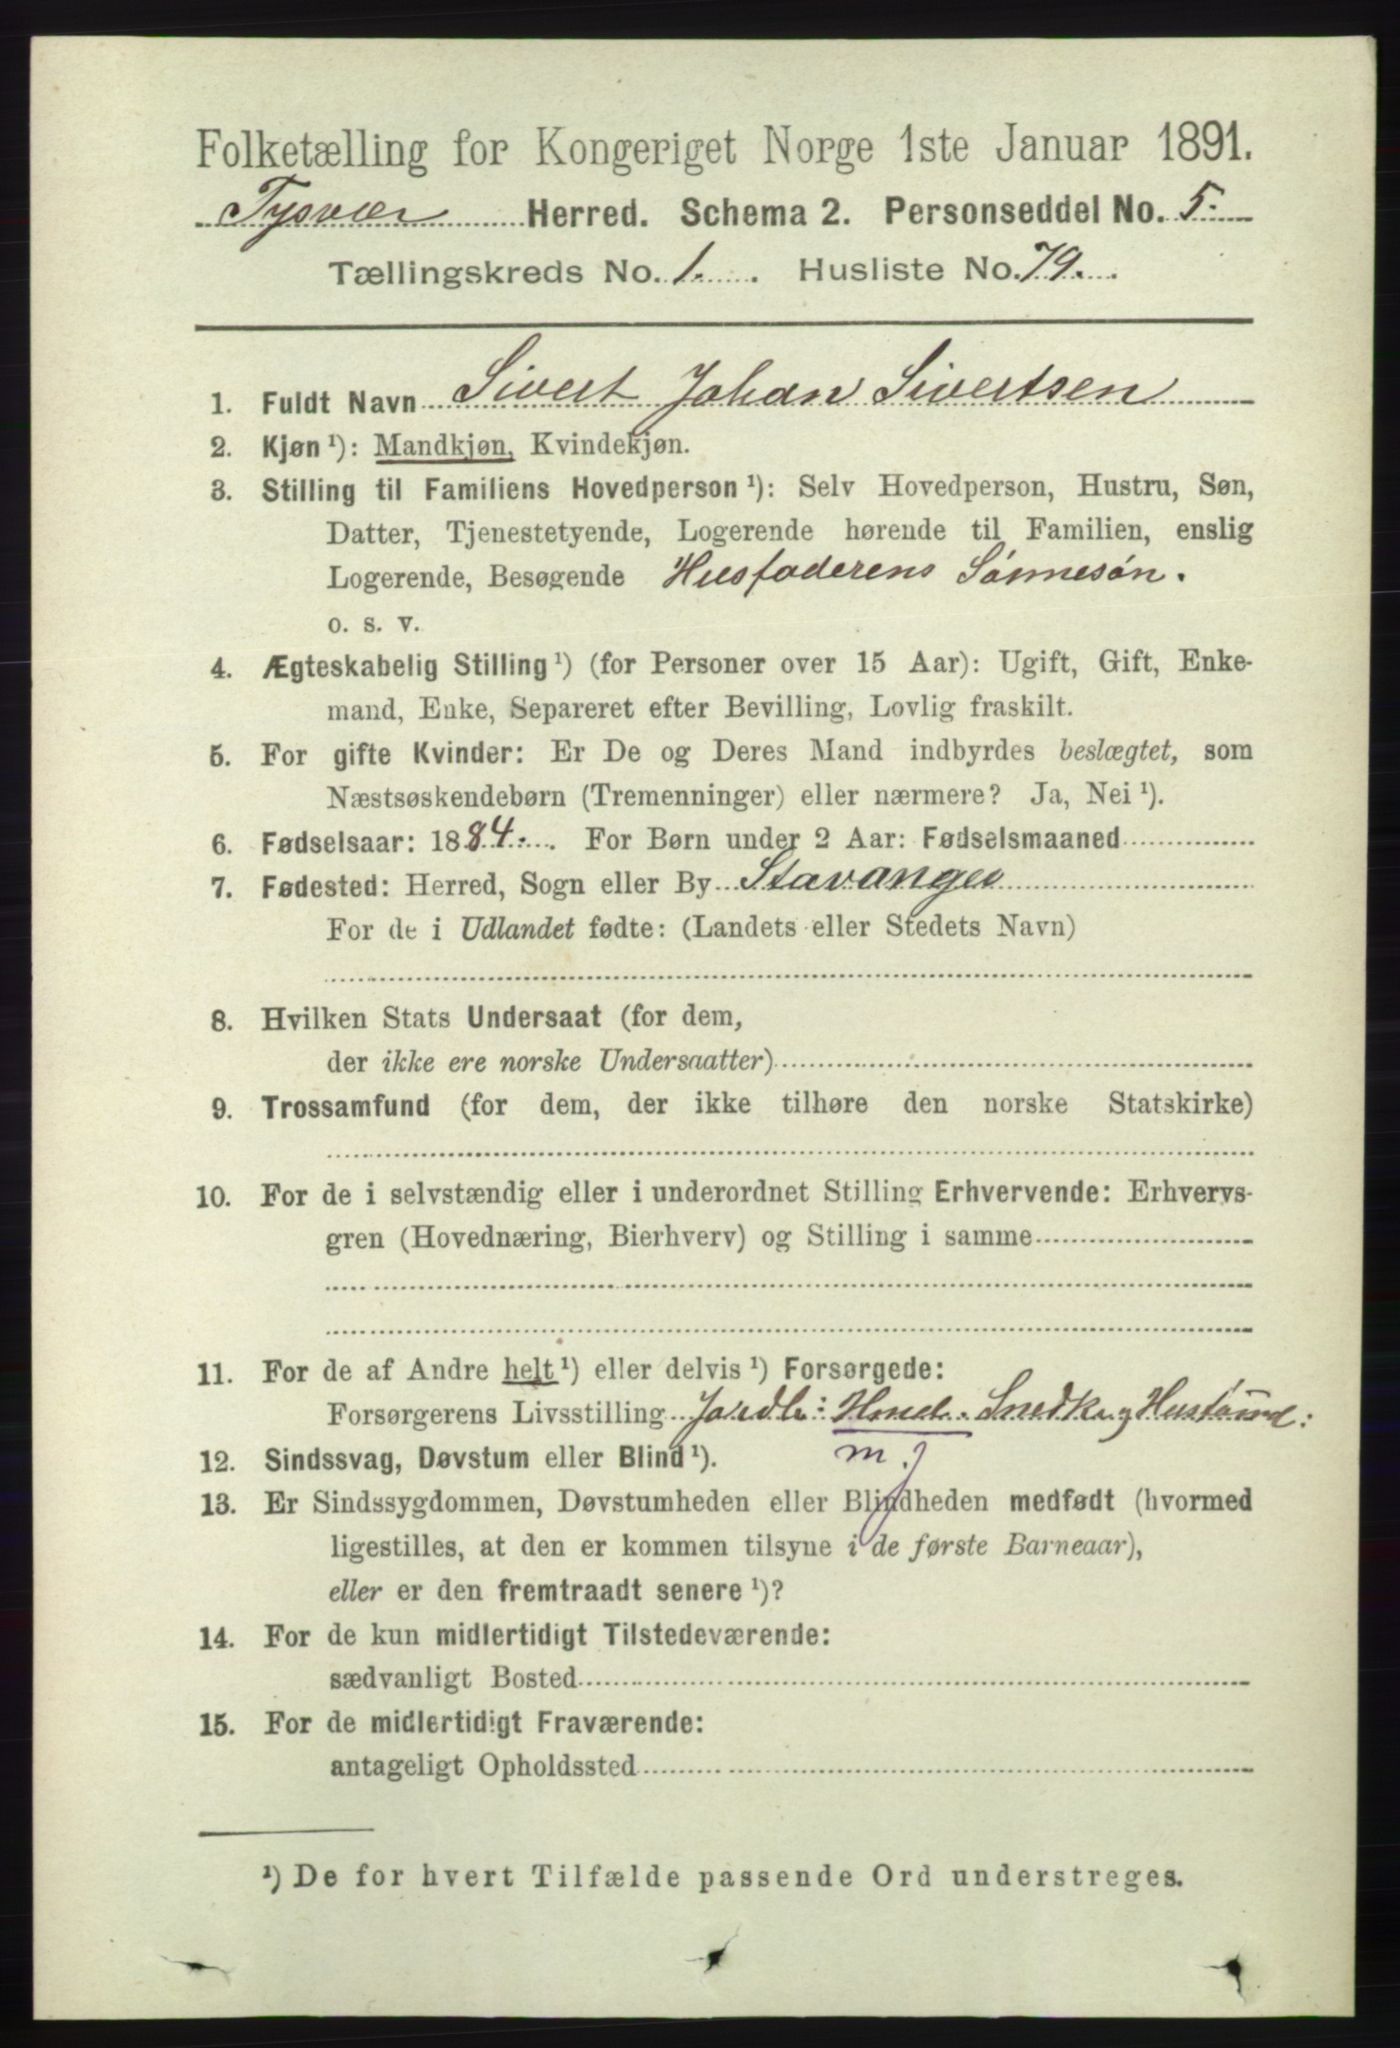 Folketælling for Kongeriget Norge 1ste Januar 1891.
Tysvær Herred. Schema 2. Personseddel No. 5.
Tællingskreds No. 1. Husliste No. 79.
1. Fuldt Navn Sivert Johan Sivertsen
2. Kjøn ¹): Mandkjøn, Kvindekjøn.
3. Stilling til Familiens Hovedperson ¹): Selv Hovedperson, Hustru, Søn,
Datter, Tjenestetyende, Logerende hørende til Familien, enslig
Logerende, Besøgende Husfaderens Sønnesøn.
o. s. v.
4. Ægteskabelig Stilling ¹) (for Personer over 15 Aar): Ugift, Gift, Enke-
mand, Enke, Separeret efter Bevilling, Lovlig fraskilt.
5. For gifte Kvinder: Er De og Deres Mand indbyrdes beslægtet, som
Næstsøskendebørn (Tremenninger) eller nærmere? Ja, Nei ¹).
6. Fødselsaar: 1884. For Børn under 2 Aar: Fødselsmaaned
7. Fødested: Herred, Sogn eller By Stavanger
For de i Udlandet fødte: (Landets eller Stedets Navn)
8. Hvilken Stats Undersaat (for dem,
der ikke ere norske Undersaatter)
9. Trossamfund (for dem, der ikke tilhøre den norske Statskirke)
10. For de i selvstændig eller i underordnet Stilling Erhvervende: Erhvervs-
gren (Hovednæring, Bierhverv) og Stilling i samme
11. For de af Andre helt ¹) eller delvis ¹) Forsørgede:
Forsørgerens Livsstilling Jordb: Snedk
12. Sindssvag, Døvstum eller Blind ¹). m. j
13. Er Sindssygdommen, Døvstumheden eller Blindheden medfødt (hvormed
ligestilles, at den er kommen tilsyne i de første Barneaar),
eller er den fremtraadt senere ¹)?
14. For de kun midlertidigt Tilstedeværende:
sædvanligt Bosted
15. For de midlertidigt Fraværende:
antageligt Opholdssted
¹) De for hvert Tilfælde passende Ord understreges.